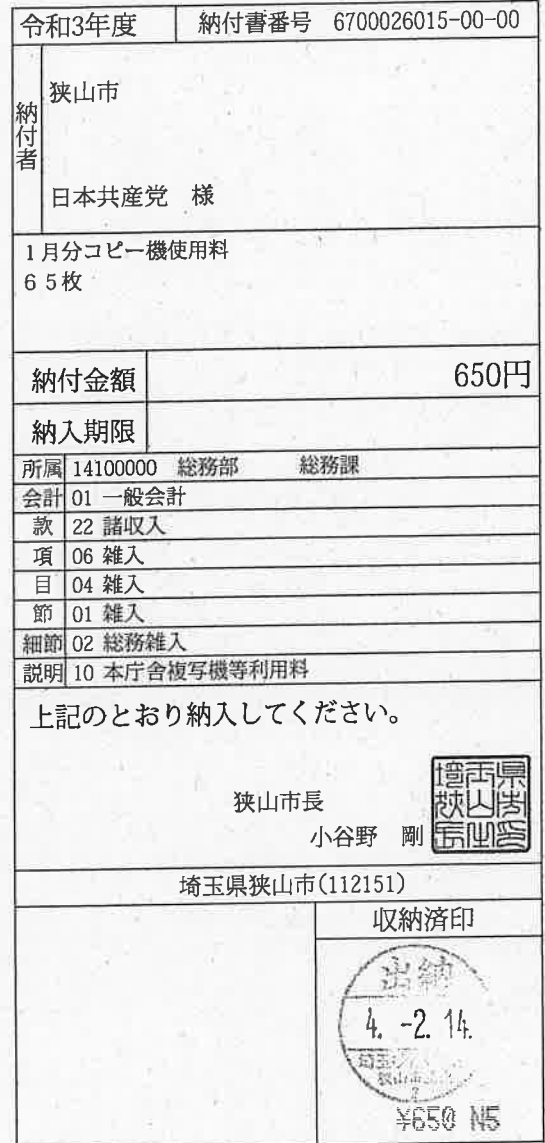 令和3年度 納付書番号 6700026015-00-00
納付者
狭山市
日本共産党 様
1月分コピー機使用料
65枚
納付金額 650円
納入期限
所属 14100000 総務部 総務課
会計 01 一般会計
款 22 諸収入
項 06 雑入
目 04 雑入
節 01 雑入
細節 02 総務雑入
説明 10 本庁舎複写機等利用料
上記のとおり納入してください。
狭山市長
小谷野 剛
埼玉県狭山市(112151)
収納済印
出納
4. -2. 14.
埼玉
狭山市
¥650 N5